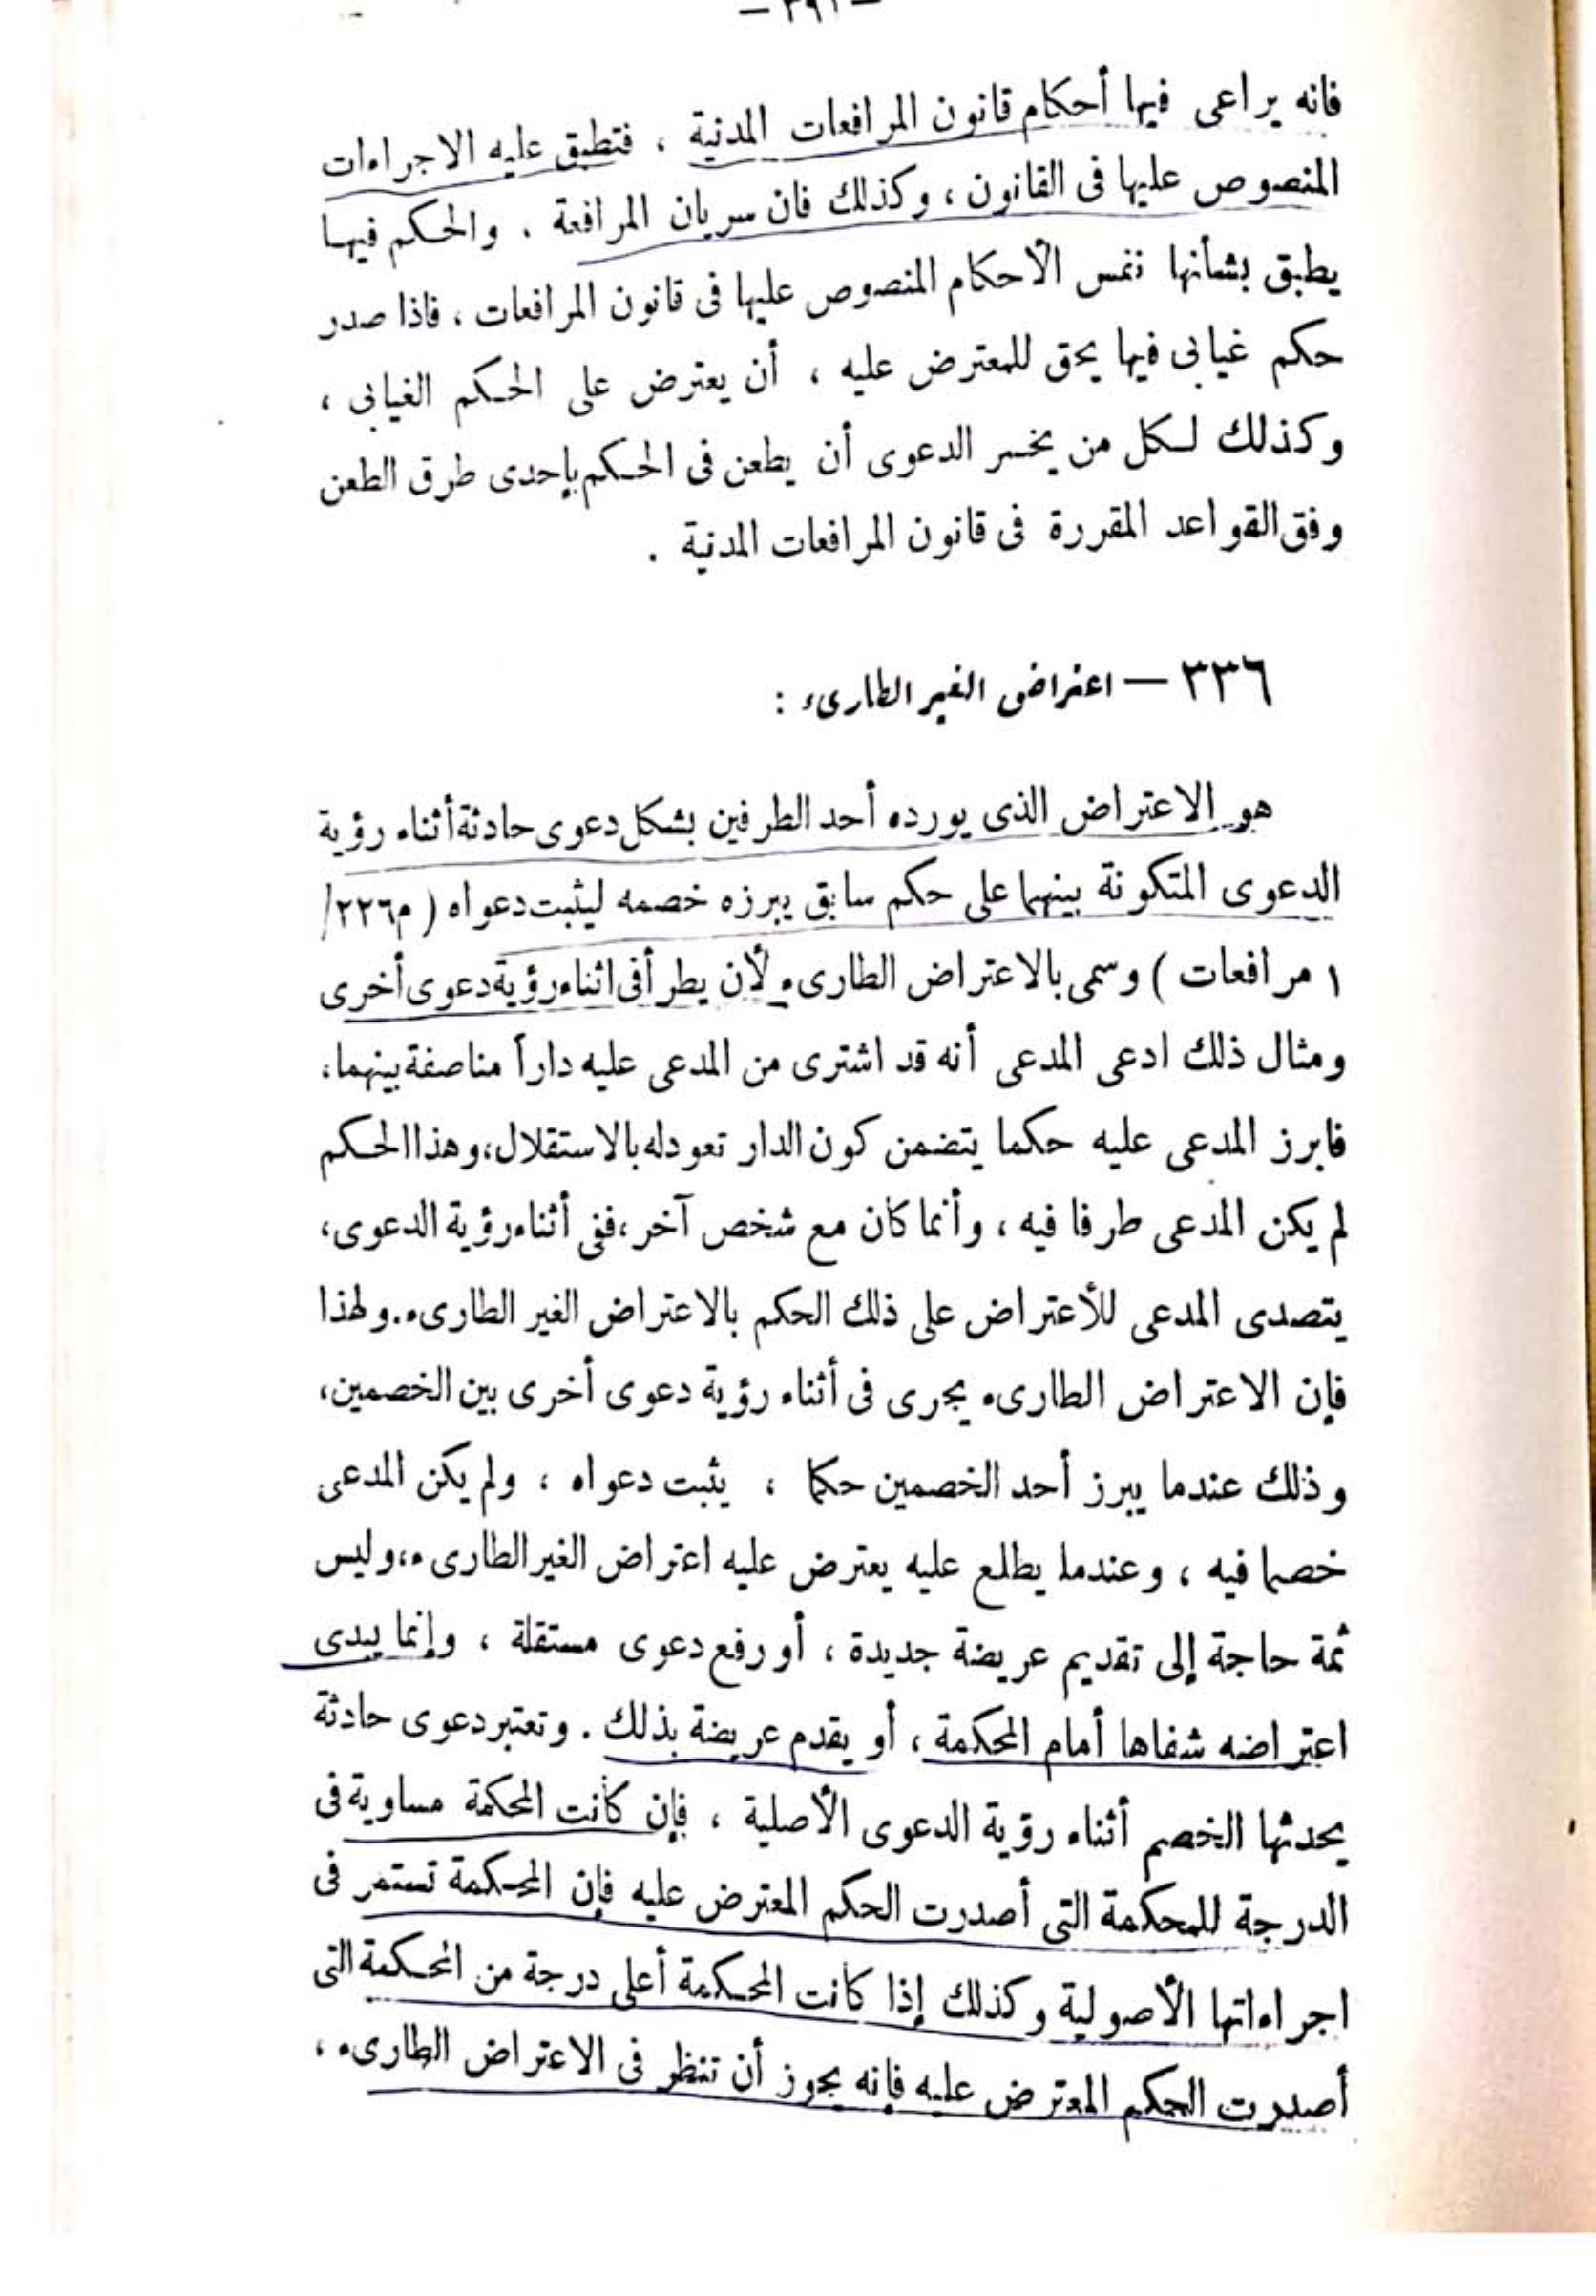 فانه يراعى فيها أحكام قانون المرافعات المدنية ، فتطبق عليه الاجراءات
المنصوص عليها فى القانون ، وكذلك فان سريان المرافعة . والحكم فيها
يطبق بشأنها نفس الأحكام المنصوص عليها فى قانون المرافعات ، فاذا صدر
حكم غيابى فيها يحق للمعترض عليه ، أن يعترض على الحكم الغيابى ،
وكذلك لكل من يخسر الدعوى أن يطعن فى الحكم بإحدى طرق الطعن
وفق القواعد المقررة فى قانون المرافعات المدنية .
٣٣٦ — اعتراض الغير الطارىء :
هو الاعتراض الذى يورده أحد الطرفين بشكل دعوى حادثة أثناء رؤية
الدعوى المتكونة بينهما على حكم سابق يبرزه خصمه ليثبت دعواه ( م٢٢٦/
١ مرافعات ) وسمى بالاعتراض الطارىء لأن يطرأ فى اثناء رؤية دعوى أخرى
ومثال ذلك ادعى المدعى أنه قد اشترى من المدعى عليه داراً مناصفة بينهما،
فابرز المدعى عليه حكما يتضمن كون الدار تعود له بالاستقلال، وهذا الحكم
لم يكن المدعى طرفا فيه ، وأنما كان مع شخص آخر ، ففى أثناء رؤية الدعوى،
يتصدى المدعى للأعتراض على ذلك الحكم بالاعتراض الغير الطارىء. ولهذا
فإن الاعتراض الطارىء يجرى فى أثناء رؤية دعوى أخرى بين الخصمين،
وذلك عندما يبرز أحد الخصمين حكما ، يثبت دعواه ، ولم يكن المدعى
خصما فيه ، وعندما يطلع عليه يعترض عليه اعتراض الغير الطارىء،، وليس
ثمة حاجة إلى تقديم عريضة جديدة ، أو رفع دعوى مستقلة ، وإنما يبدى
اعتراضه شفاها أمام المحكمة ، أو يقدم عريضة بذلك . وتعتبر دعوى حادثة
يحدثها الخصم أثناء رؤية الدعوى الأصلية ، فإن كانت المحكمة مساوية فى
الدرجة للمحكمة التى أصدرت الحكم المعترض عليه فإن المحكمة تستمر فى
اجراءاتها الأصولية وكذلك إذا كانت المحكمة أعلى درجة من المحكمة التى
أصدرت الحكم المعترض عليه فإنه يجوز أن تنظر فى الاعتراض الطارىء ،